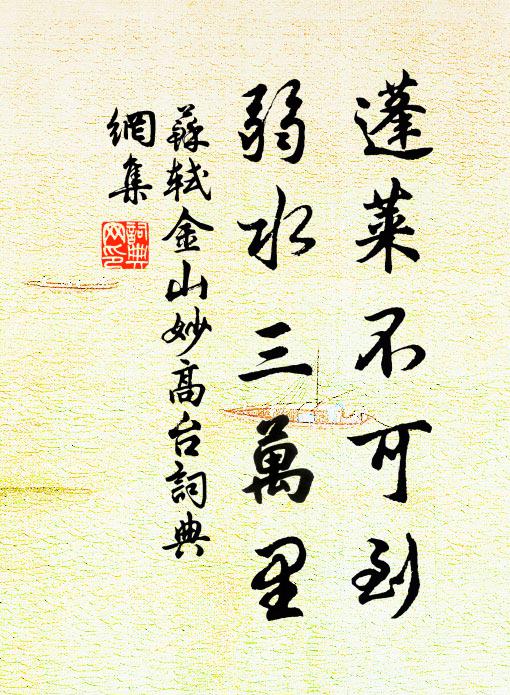 蓬萊不可到
弱水三萬里
蘇軾金山妙高台詞典
網集
詞典
网印